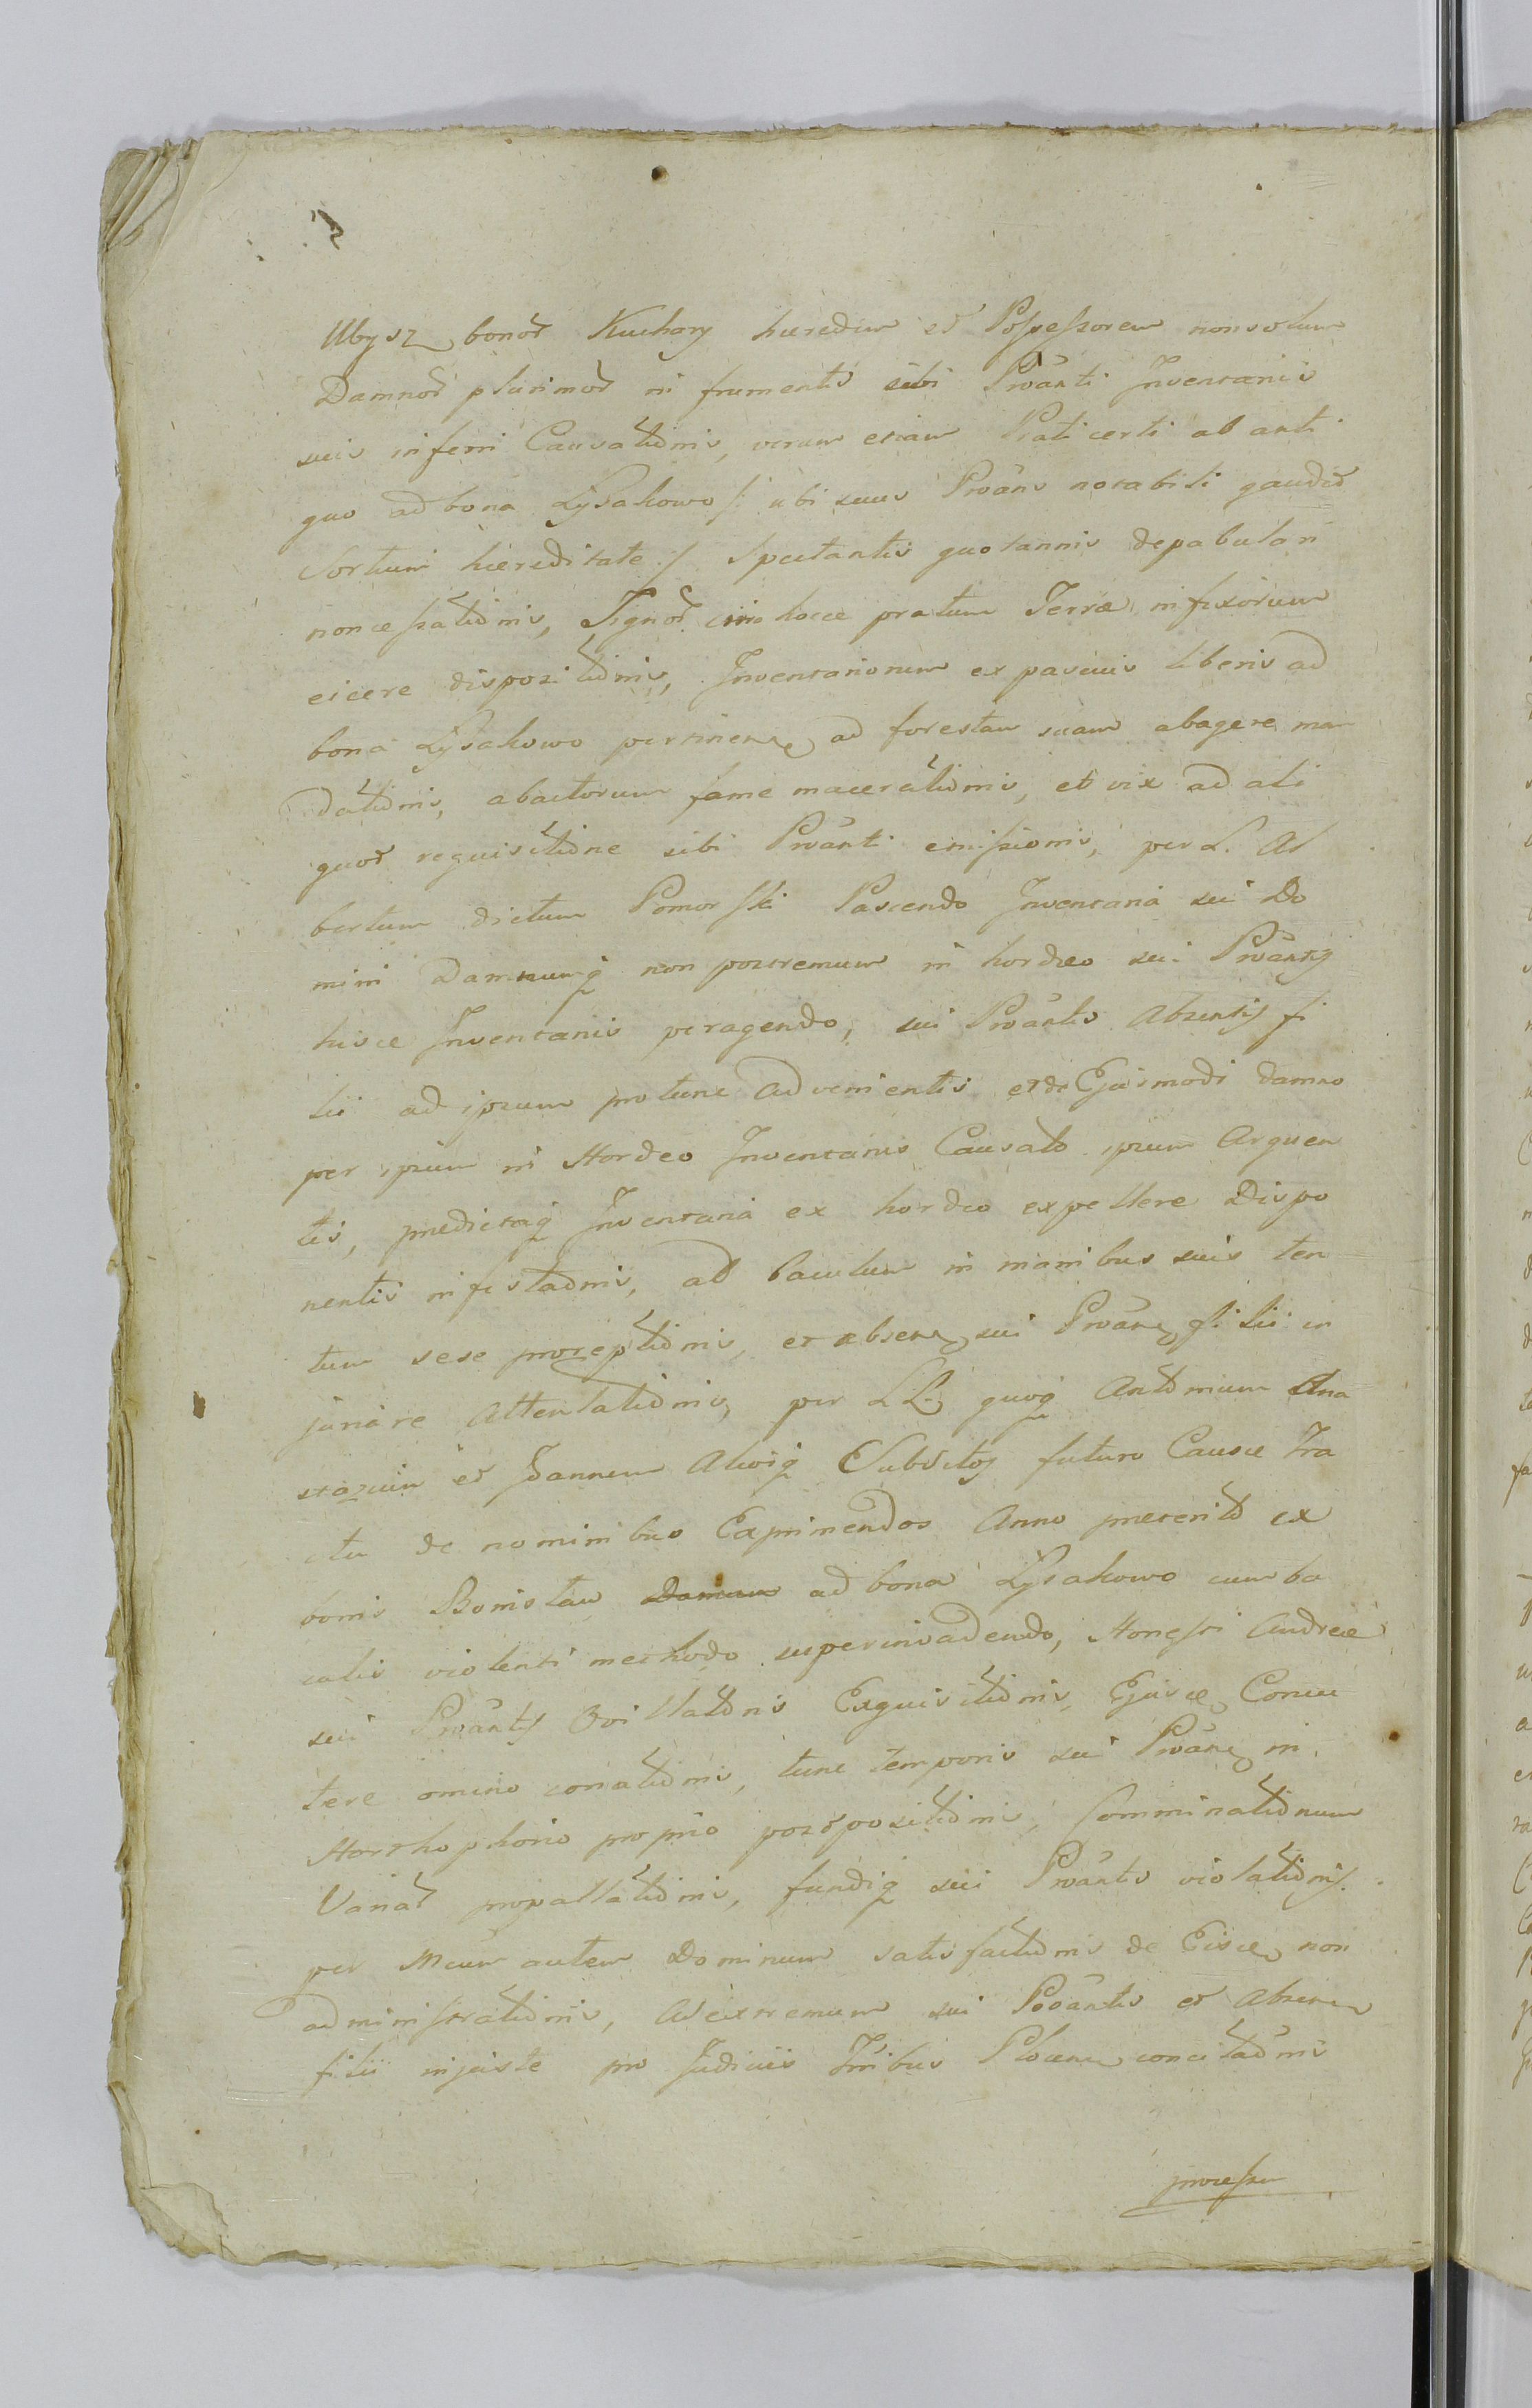 Ubysz bonor Kuchary hæredem et Possessorem non solum
Damnor plurimor in frumentis sibi Proanti Inventariis
suis inferri Causationis, verum etiam Prati certi ab anti
quo ad bona Lysakowo /: ubi suus Proans notabili gaudet
Sortium hæreditate :/ Spectantis quotannis depabulari
non cessationis, Signor hocce pratum Terræ infixorum
eicere dispozitionis, Inventariorum ex pascuis liberis ad
bona Lysakowo pertinen ad forestam suam abagere man
dationis, abactorum fame macerationis, et vix ad ali
quor requisitione sibi Proanti emissionis, per L. Al
bertum dictum Pomorski Pascendo Inventaria sui Do
mini Damnumq non postremum in hordeo sui Proantis
hisce Inventariis peragendo, sui Proantis Absentis fi
lii ad ipsum pro tunc advenientis et de Ejusmodi damno
per ipsum in Hordeo Inventariis Causato ipsum Arguen
tis, predictaq Inventaria ex hordeo expellere Dispo
nentis infestaonis, ad baculum in manibus suis ten
tum sese proreptionis, et absen sui Proan filii in
juriare Attentationis, per LL quoq Antonium Ana
stazium et Joannem Aliosq Subditos futuro Causæ Tra
ctu de nominibus Exprimendos Anno preterito ex
bonis Bonislaw ad bona Lysakowo cum ba
culis violenti methodo superinvadendo, Honesti Andreæ
sui Proantis Ovillatoris Exquisitionis, Ejusce Concu
tere omino conationis, tunc temporis sui Proan in
Horthophorio proprio postpositionis, Comminationum
Variar propallationis, fundiq sui Proantis violationis.
per Meum autem Dominum satisfactionis de Eisce non
administrationis, Ad extremum sui Proantis et Absen
filii injuste pro Judiciis Tribus Plocen concitaonis
processu